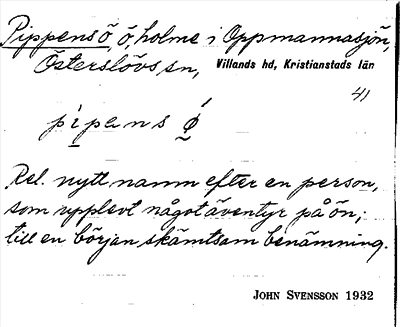 Pippens ö, ö, holme i Oppmannasjön,
Österslövs sn, Villands hd, Kristianstads län
41
pipens ǿ
Rel. nytt namn efter en person,
som upplevt något äventyr på ön;
till en början skämtsam benämning.
JOHN SVENSSON 1932